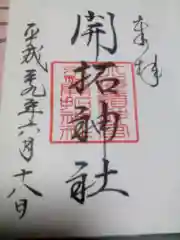 奉拝
開拓神社
平成廿九年六月十八日